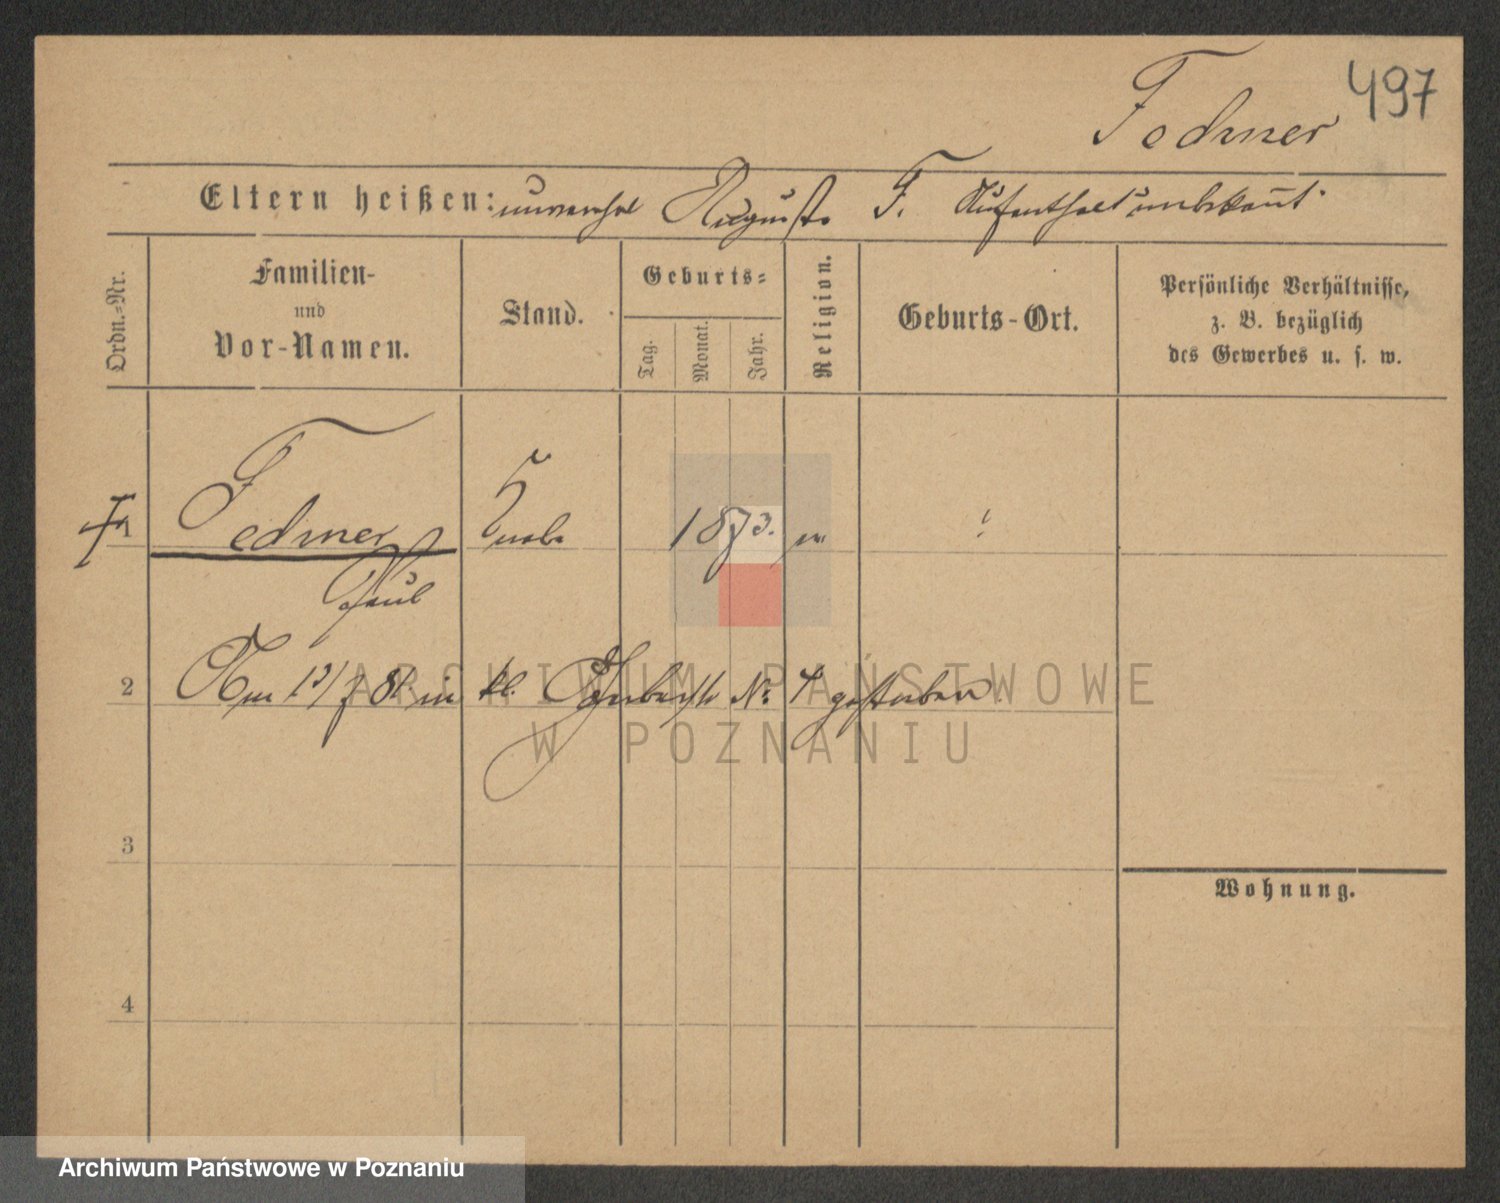 497
Fechner
Eltern heißen: unverehel Auguste F. Aufenthalt unbekannt.
Ordn.-Nr.
Familien-
und
Vor-Namen.
Stand.
Geburts-
Tag.
Monat.
Jahr.
Religion.
Geburts-Ort.
Persönliche Verhältnisse,
z. B. bezüglich
des Gewerbes u. s. w.
1 Knabe 1873. ?
Paul
2 Am 13/7 81 in kl. Gerberstr № 4 gestorben
3
Wohnung.
4
ARCHIWUM PAŃSTWOWE
W POZNANIU
Archiwum Państwowe w Poznaniu